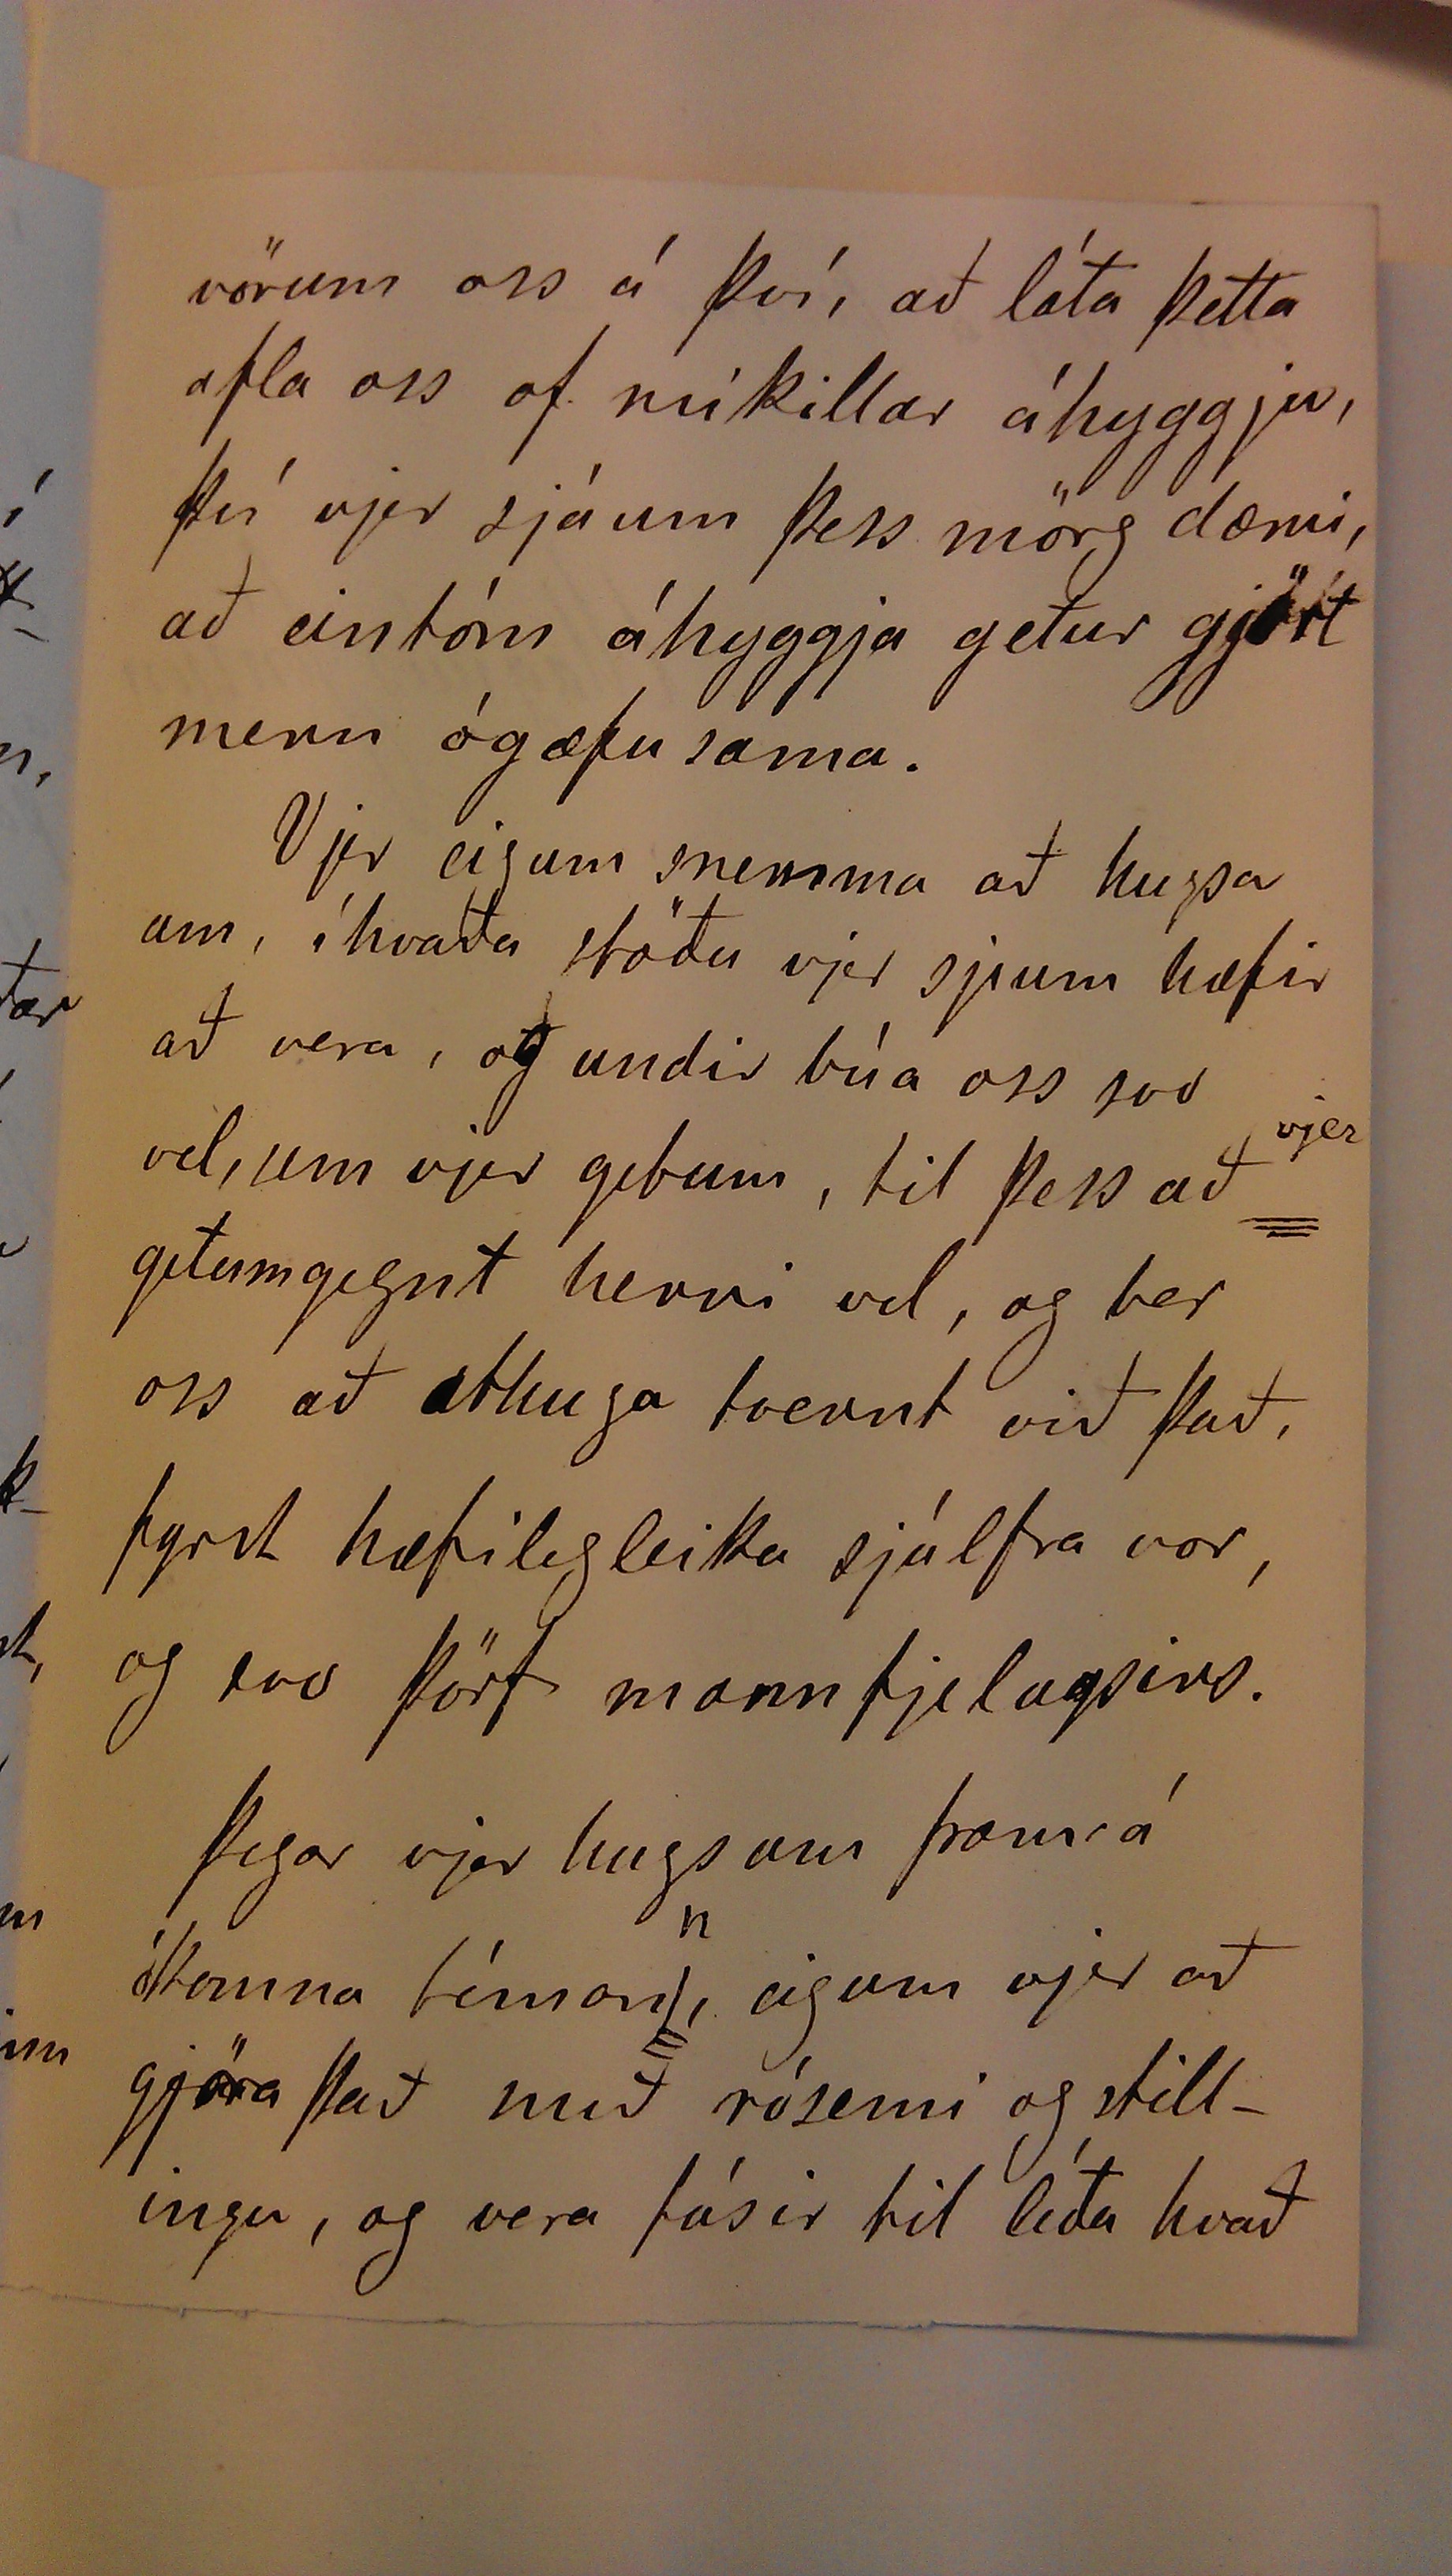 vörum oss á því, að láta þetta
afla oss of mikillar áhyggju,
því vjer sjáum þess mörg dæmi,
að eintóm áhyggja getur gjört
menn ógæfusama.
Vjer eigum snemma að hugsa
um, í hvaða stöðu vjer sjeum hæfir
að vera, og undir búa oss svo
vel, sem vjer getum, til þess að vjer
getum gegnt henni vel, og ber
oss að athuga tvennt við það,
fyrst hæfilegleika sjálfra vor,
og svo þörf mannfjelagsins.
Þegar vjer hugsum fram á
ókomna tímann, eigum vjer að
gjöra það með rósemi og still-
ingu, og vera fúsir til líða hvað